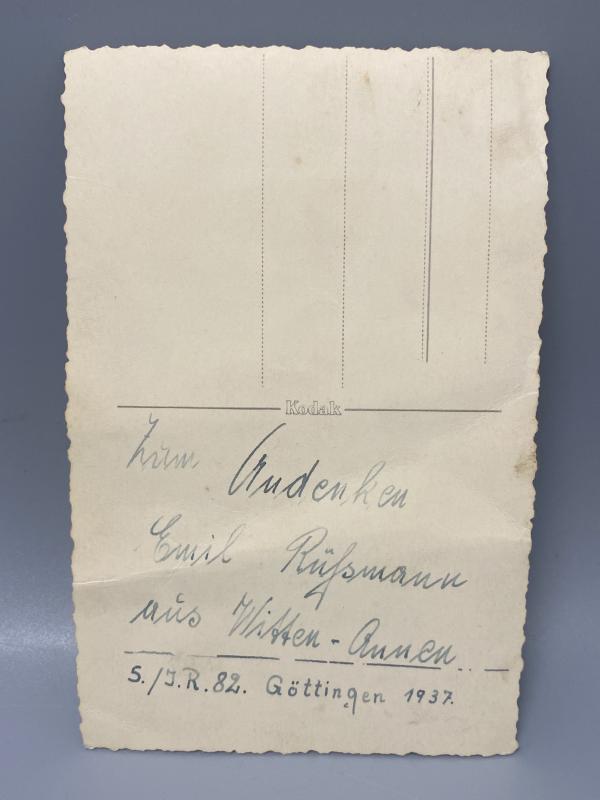 Kodak
Zum Andenken
Emil Rüßmann
aus Witten-Annen
5./J.R.82. Göttingen 1937.